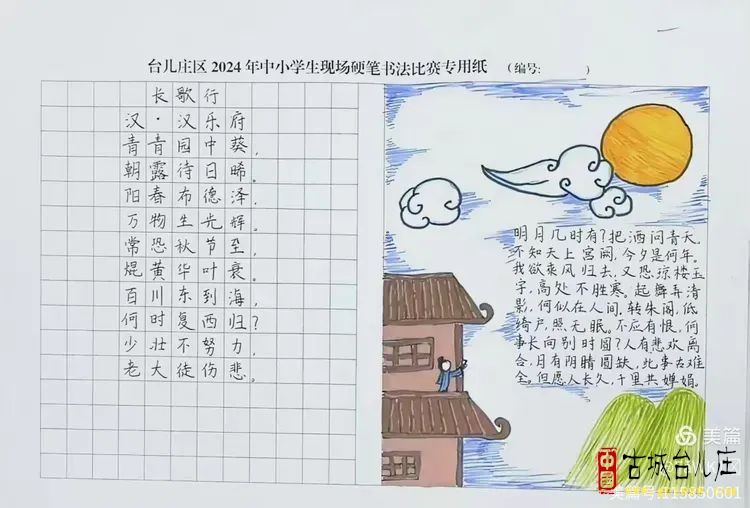 台儿庄区2024年中小学生现场硬笔书法比赛专用纸 (编号: )
长歌行
汉·汉乐府
青青园中葵,
朝露待日晞。
阳春布德泽,
万物生光辉。
常恐秋节至,
焜黄华叶衰。
百川东到海,
何时复西归?
少壮不努力,
老大徒伤悲。
明月几时有?把酒问青天,
不知天上宫阙,今夕是何年。
我欲乘风归去,又恐琼楼玉
宇,高处不胜寒。起舞弄清
影,何似在人间,转朱阁,低
绮户,照无眠。不应有恨,何
事长向别时圆?人有悲欢离
合,月有阴晴圆缺,此事古难
全。但愿人长久,千里共婵娟。
美篇
中国
古城台儿庄
美篇号:115850601